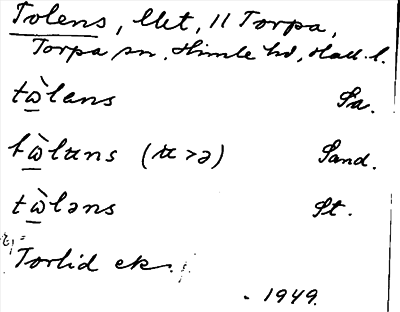 Tolens, llet, 11 Torpa,
Torpa sn, Himle hd, Hall. l.
tὼ̲lens Sa.
tὼ̲læns (æ > ə) Sand.
tὼ̲ləns St.
Torlid ek.
1949.